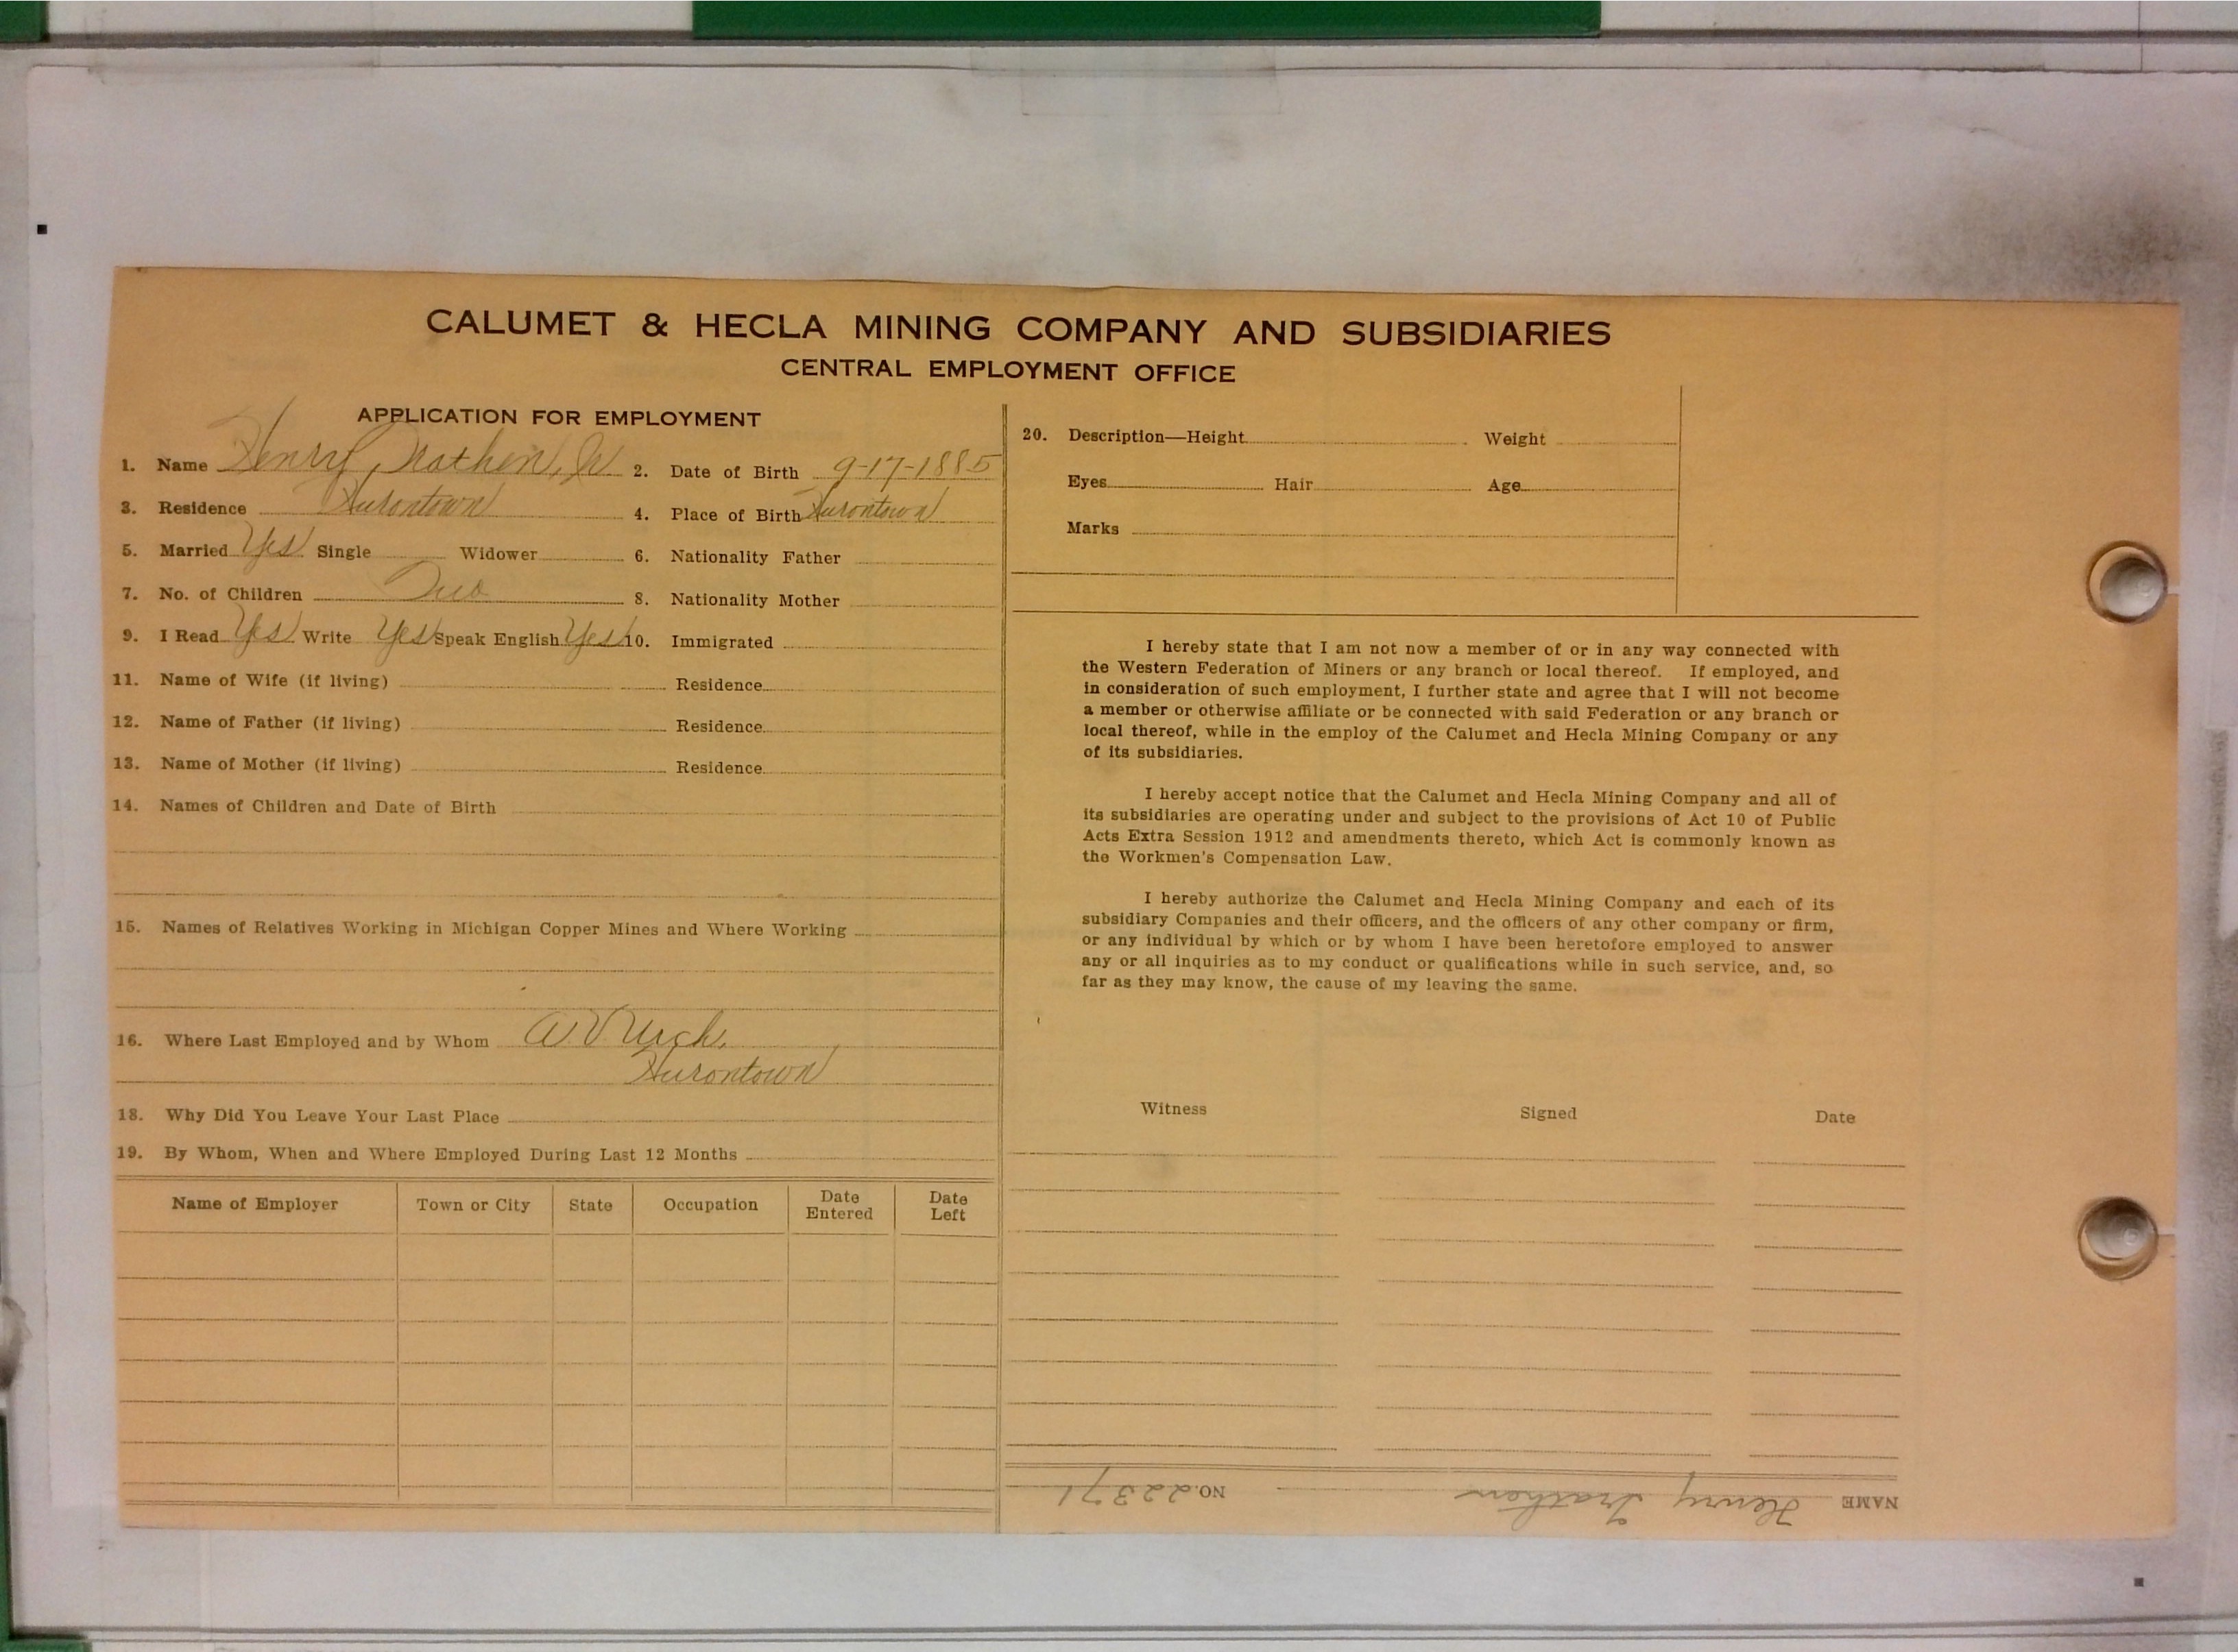 CALUMET & HECLA MINING COMPANY AND SUBSIDIARIES
CENTRAL EMPLOYMENT OFFICE
APPLICATION FOR EMPLOYMENT
1. Name Henry Trathen, Jr. 2. Date of Birth 9-17-1885
3. Residence Hurontown 4. Place of Birth Hurontown
5. Married Yes Single Widower 6. Nationality Father
7. No. of Children Two 8. Nationality Mother
9. I Read Yes Write Yes Speak English Yes 10. Immigrated
11. Name of Wife (if living) Residence
12. Name of Father (if living) Residence
13. Name of Mother (if living) Residence
14. Names of Children and Date of Birth
15. Names of Relatives Working in Michigan Copper Mines and Where Working
16. Where Last Employed and by Whom A.V.
Hurontown
18. Why Did You Leave Your Last Place
19. By Whom, When and Where Employed During Last 12 Months
Name of Employer Town or City State Occupation Date Entered Date Left
20. Description—Height Weight
Eyes Hair Age
Marks
I hereby state that I am not now a member of or in any way connected with
the Western Federation of Miners or any branch or local thereof. If employed, and
in consideration of such employment, I further state and agree that I will not become
a member or otherwise affiliate or be connected with said Federation or any branch or
local thereof, while in the employ of the Calumet and Hecla Mining Company or any
of its subsidiaries.
I hereby accept notice that the Calumet and Hecla Mining Company and all of
its subsidiaries are operating under and subject to the provisions of Act 10 of Public
Acts Extra Session 1912 and amendments thereto, which Act is commonly known as
the Workmen's Compensation Law.
I hereby authorize the Calumet and Hecla Mining Company and each of its
subsidiary Companies and their officers, and the officers of any other company or firm,
or any individual by which or by whom I have been heretofore employed to answer
any or all inquiries as to my conduct or qualifications while in such service, and, so
far as they may know, the cause of my leaving the same.
Witness Signed Date
NAME Henry Trathen NO. 22371